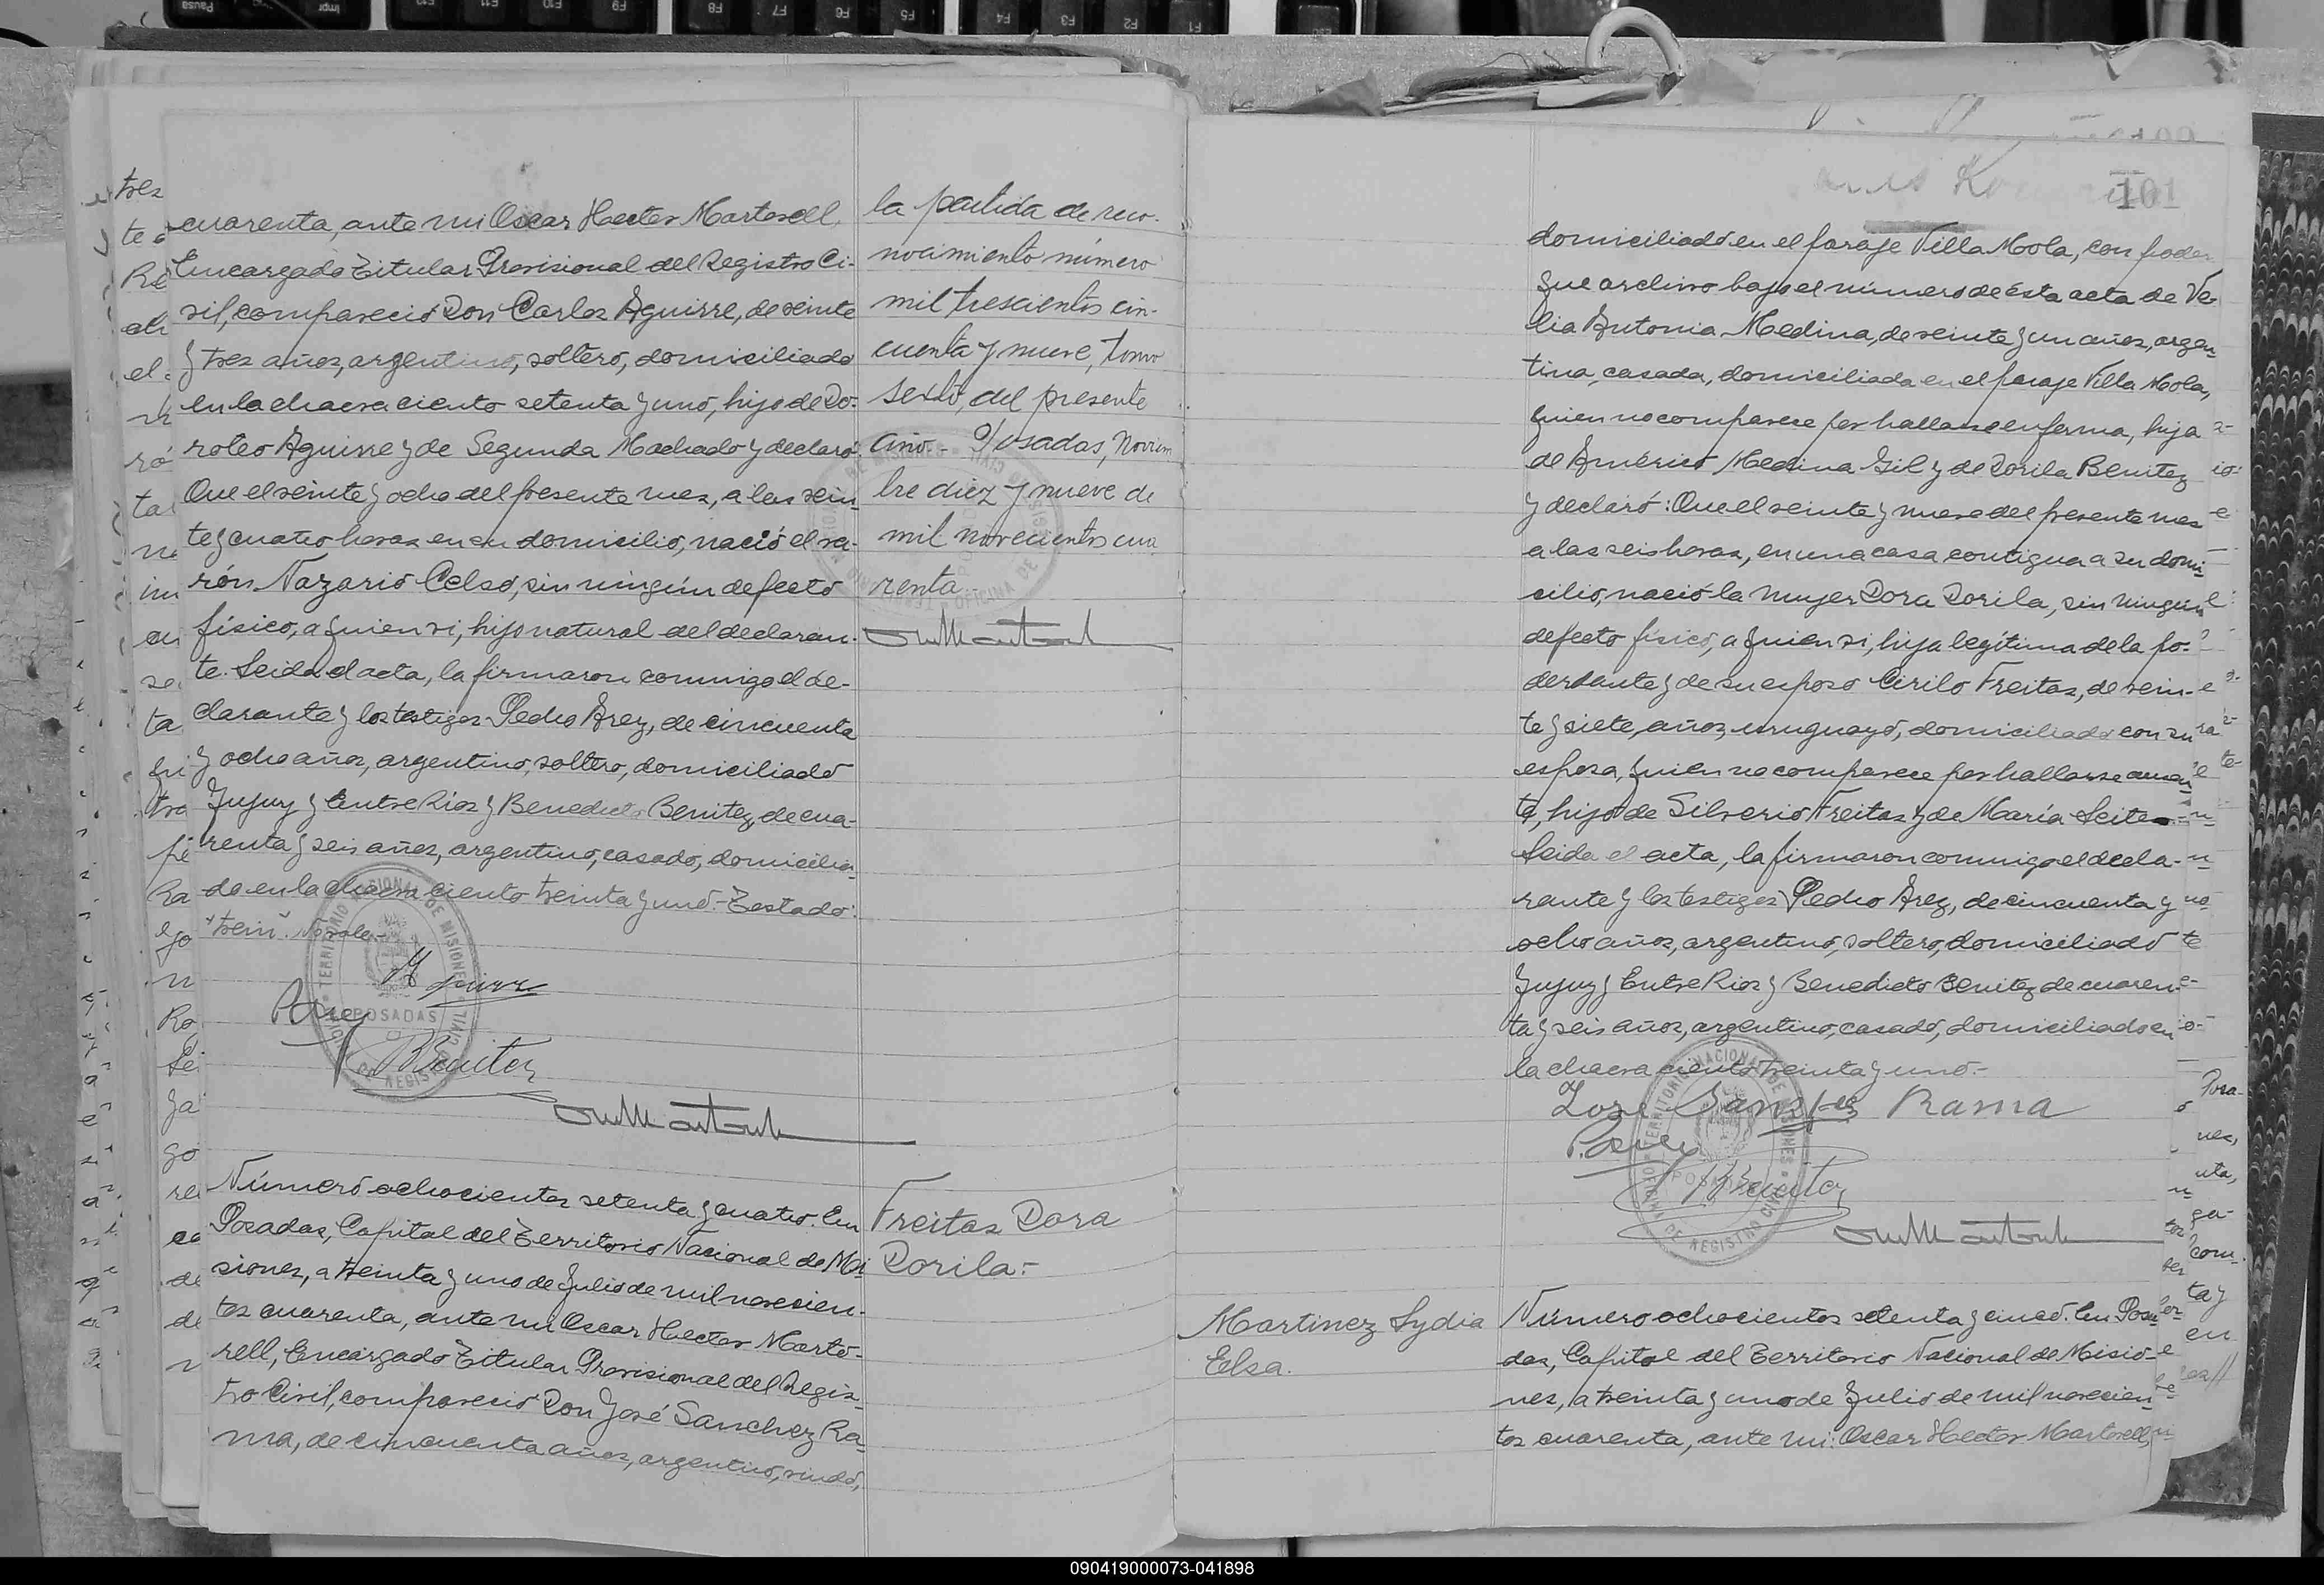 cuarenta, ante mi Oscar Hector Martorell,
Encargado Titular Provisional del Registro Ci-
vil, compareció Don Carlos Aguirre, de veinte
y tres años, argentino, soltero, domiciliado
en la chacra ciento setenta y uno, hijo de Do-
roteo Aguirre y de Segunda Machado y declaró:
Que el veinte y ocho del presente mes, a las vein-
te y cuatro horas en su domicilio, nació el va-
rón Nazario Celso, sin ningún defecto
físico, a quien vi, hijo natural del declaran-
te. Leida el acta, la firmaron conmigo el de-
clarante y los testigos Pedro Arey, de cincuenta
y ocho años, argentino, soltero, domiciliado
Jujuy y Entre Rios y Benedicto Benitez, de cua-
renta y seis años, argentino, casado, domicilia-
do en la chacra ciento treinta y uno.- Testado:
"trein". No vale.-
Aguirre
P Arey
B Benitez
la partida de reco-
nocimiento número
mil trescientos cin-
cuenta y nueve, tomo
sexto, del presente
año.- Posadas, Noviem
bre diez y nueve de
mil novecientos cua
renta
TERRITORIO NACIONAL DE MISIONES
POSADAS
REGISTRO CIVIL
Número ochocientos setenta y cuatro. En
Posadas, Capital del Territorio Nacional de Mi-
siones, a treinta y uno de Julio de mil novecien-
tos cuarenta, ante mi Oscar Hector Marto-
rell, Encargado Titular Provisional del Regis-
tro Civil, compareció Don José Sanchez Ra-
ma, de cincuenta años, argentino, viudo,
Freitas Dora
Dorila.-
101
domiciliado en el paraje Villa Mola, con poder
que archivo bajo el número de ésta acta de Ve-
lia Antonia Medina, de veinte y un años, argen-
tina, casada, domiciliada en el paraje Villa Mola,
quien no comparece por hallarse enferma, hija
de Américo Medina Gil y de Dorila Benitez
y declaró: Que el veinte y nueve del presente mes
a las seis horas, en una casa contigua a su domi-
cilio, nació la mujer Dora Dorila, sin ningún
defecto físico, a quien vi, hija legítima de la po-
derdante y de su esposo Cirilo Freitas, de vein-
te y siete, años, uruguayo, domiciliado con su
esposa, quien no comparece por hallarse ausen-
te, hijo de Silverio Freitas y de María Leites.-
Leida el acta, la firmaron conmigo el decla-
rante y los testigos Pedro Arey, de cincuenta y
ocho años, argentino, soltero, domiciliado
Jujuy y Entre Rios y Benedicto Benitez de cuaren-
ta y seis años, argentino, casado, domiciliado en
la chacra ciento treinta y uno.-
Jose Sanches Rama
P. Arey
B Benitez
TERRITORIO NACIONAL DE MISIONES
POSADAS
REGISTRO CIVIL
Martinez Lydia
Elsa.
Número ochocientos setenta y cinco. En Posa-
das, Capital del Territorio Nacional de Misio-
nes, a treinta y uno de Julio de mil novecien-
tos cuarenta, ante mi: Oscar Hector Martorell,
090419000073-041898